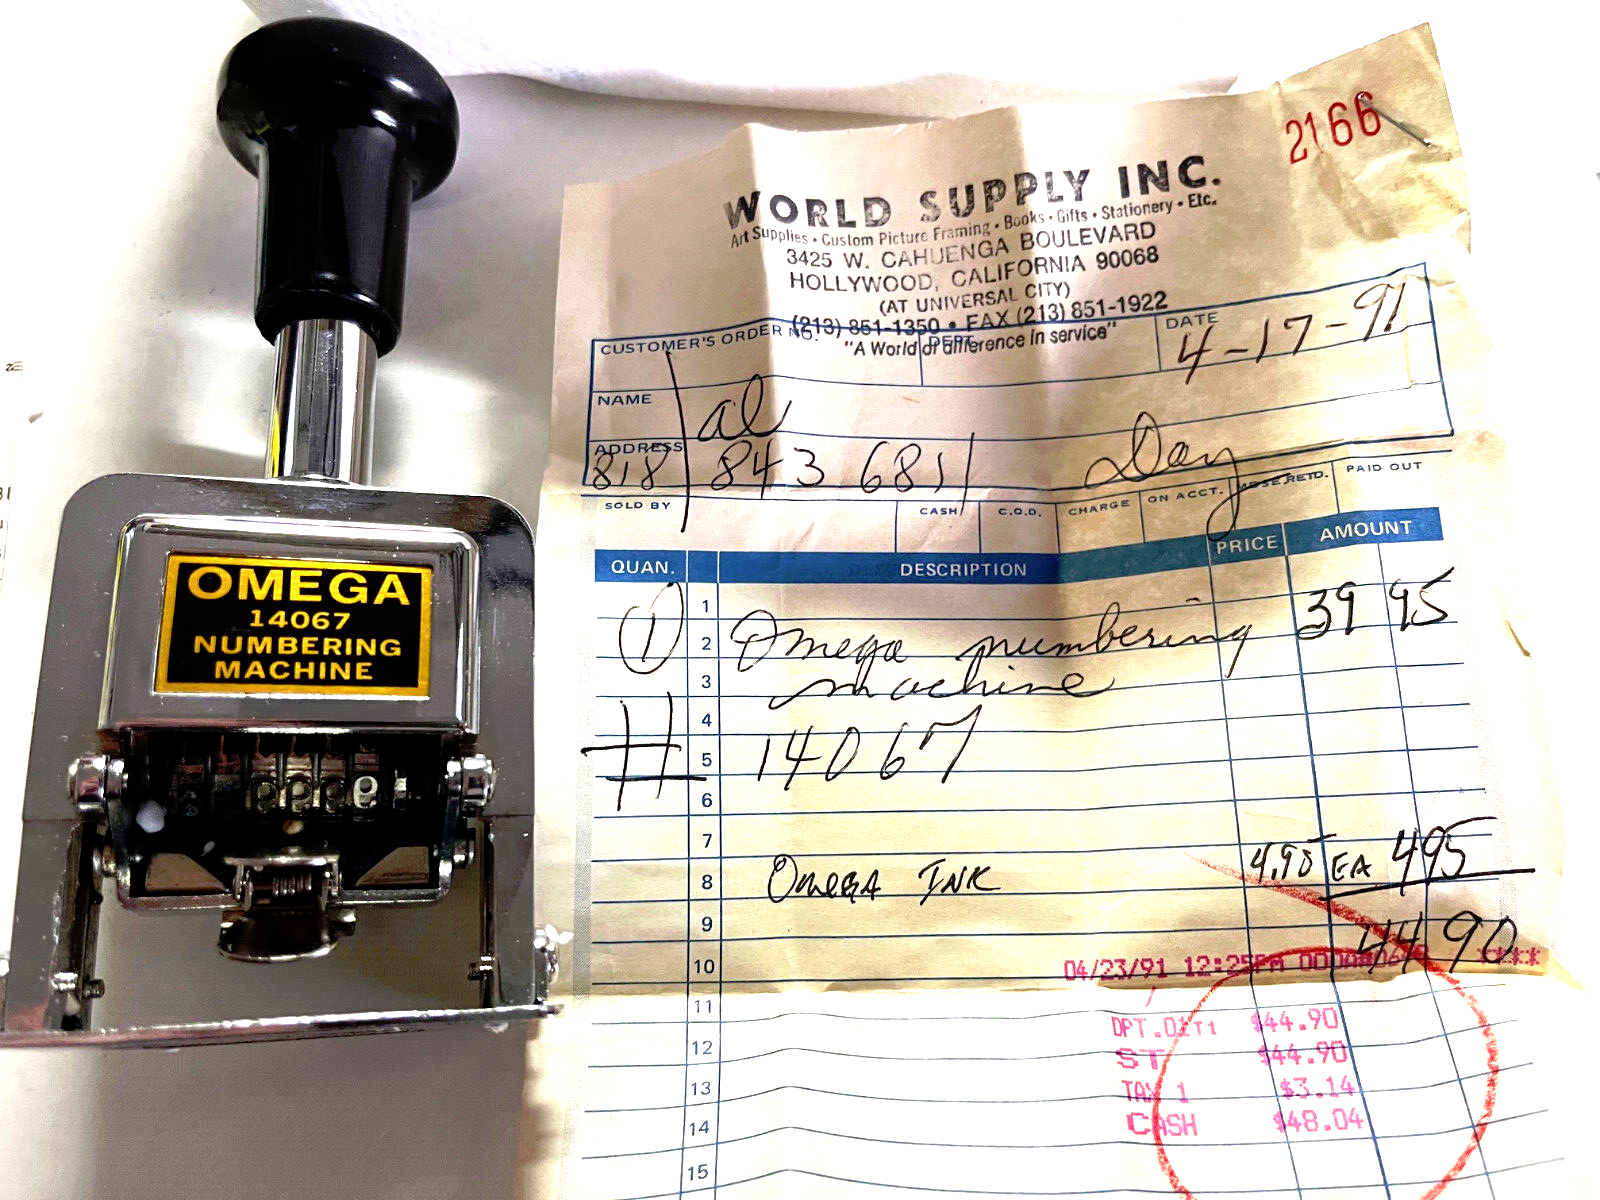 OMEGA
14067
NUMBERING
MACHINE
2166
WORLD SUPPLY INC.
Art Supplies • Custom Picture Framing • Books • Gifts • Stationery • Etc.
3425 W. CAHUENGA BOULEVARD
HOLLYWOOD, CALIFORNIA 90068
(AT UNIVERSAL CITY)
(213) 851-1350 • FAX (213) 851-1922
"A World of difference in service"
CUSTOMER'S ORDER NO. DEPT. DATE
4-17-91
NAME al
ADDRESS
818 843 681 Day
SOLD BY CASH C.O.D. CHARGE ON ACCT. MDSE.RETD. PAID OUT
QUAN. DESCRIPTION PRICE AMOUNT
1
① 2 Omega numbering 39 95
3 machine
4
# 5 14067
6
7
8 OMEGA INK 4.95 EA 4 95
9
44 90
10
04/23/91 12:25PM
11
DPT.01T1 $44.90
12 ST $44.90
13 TAX 1 $3.14
14 CASH $48.04
15